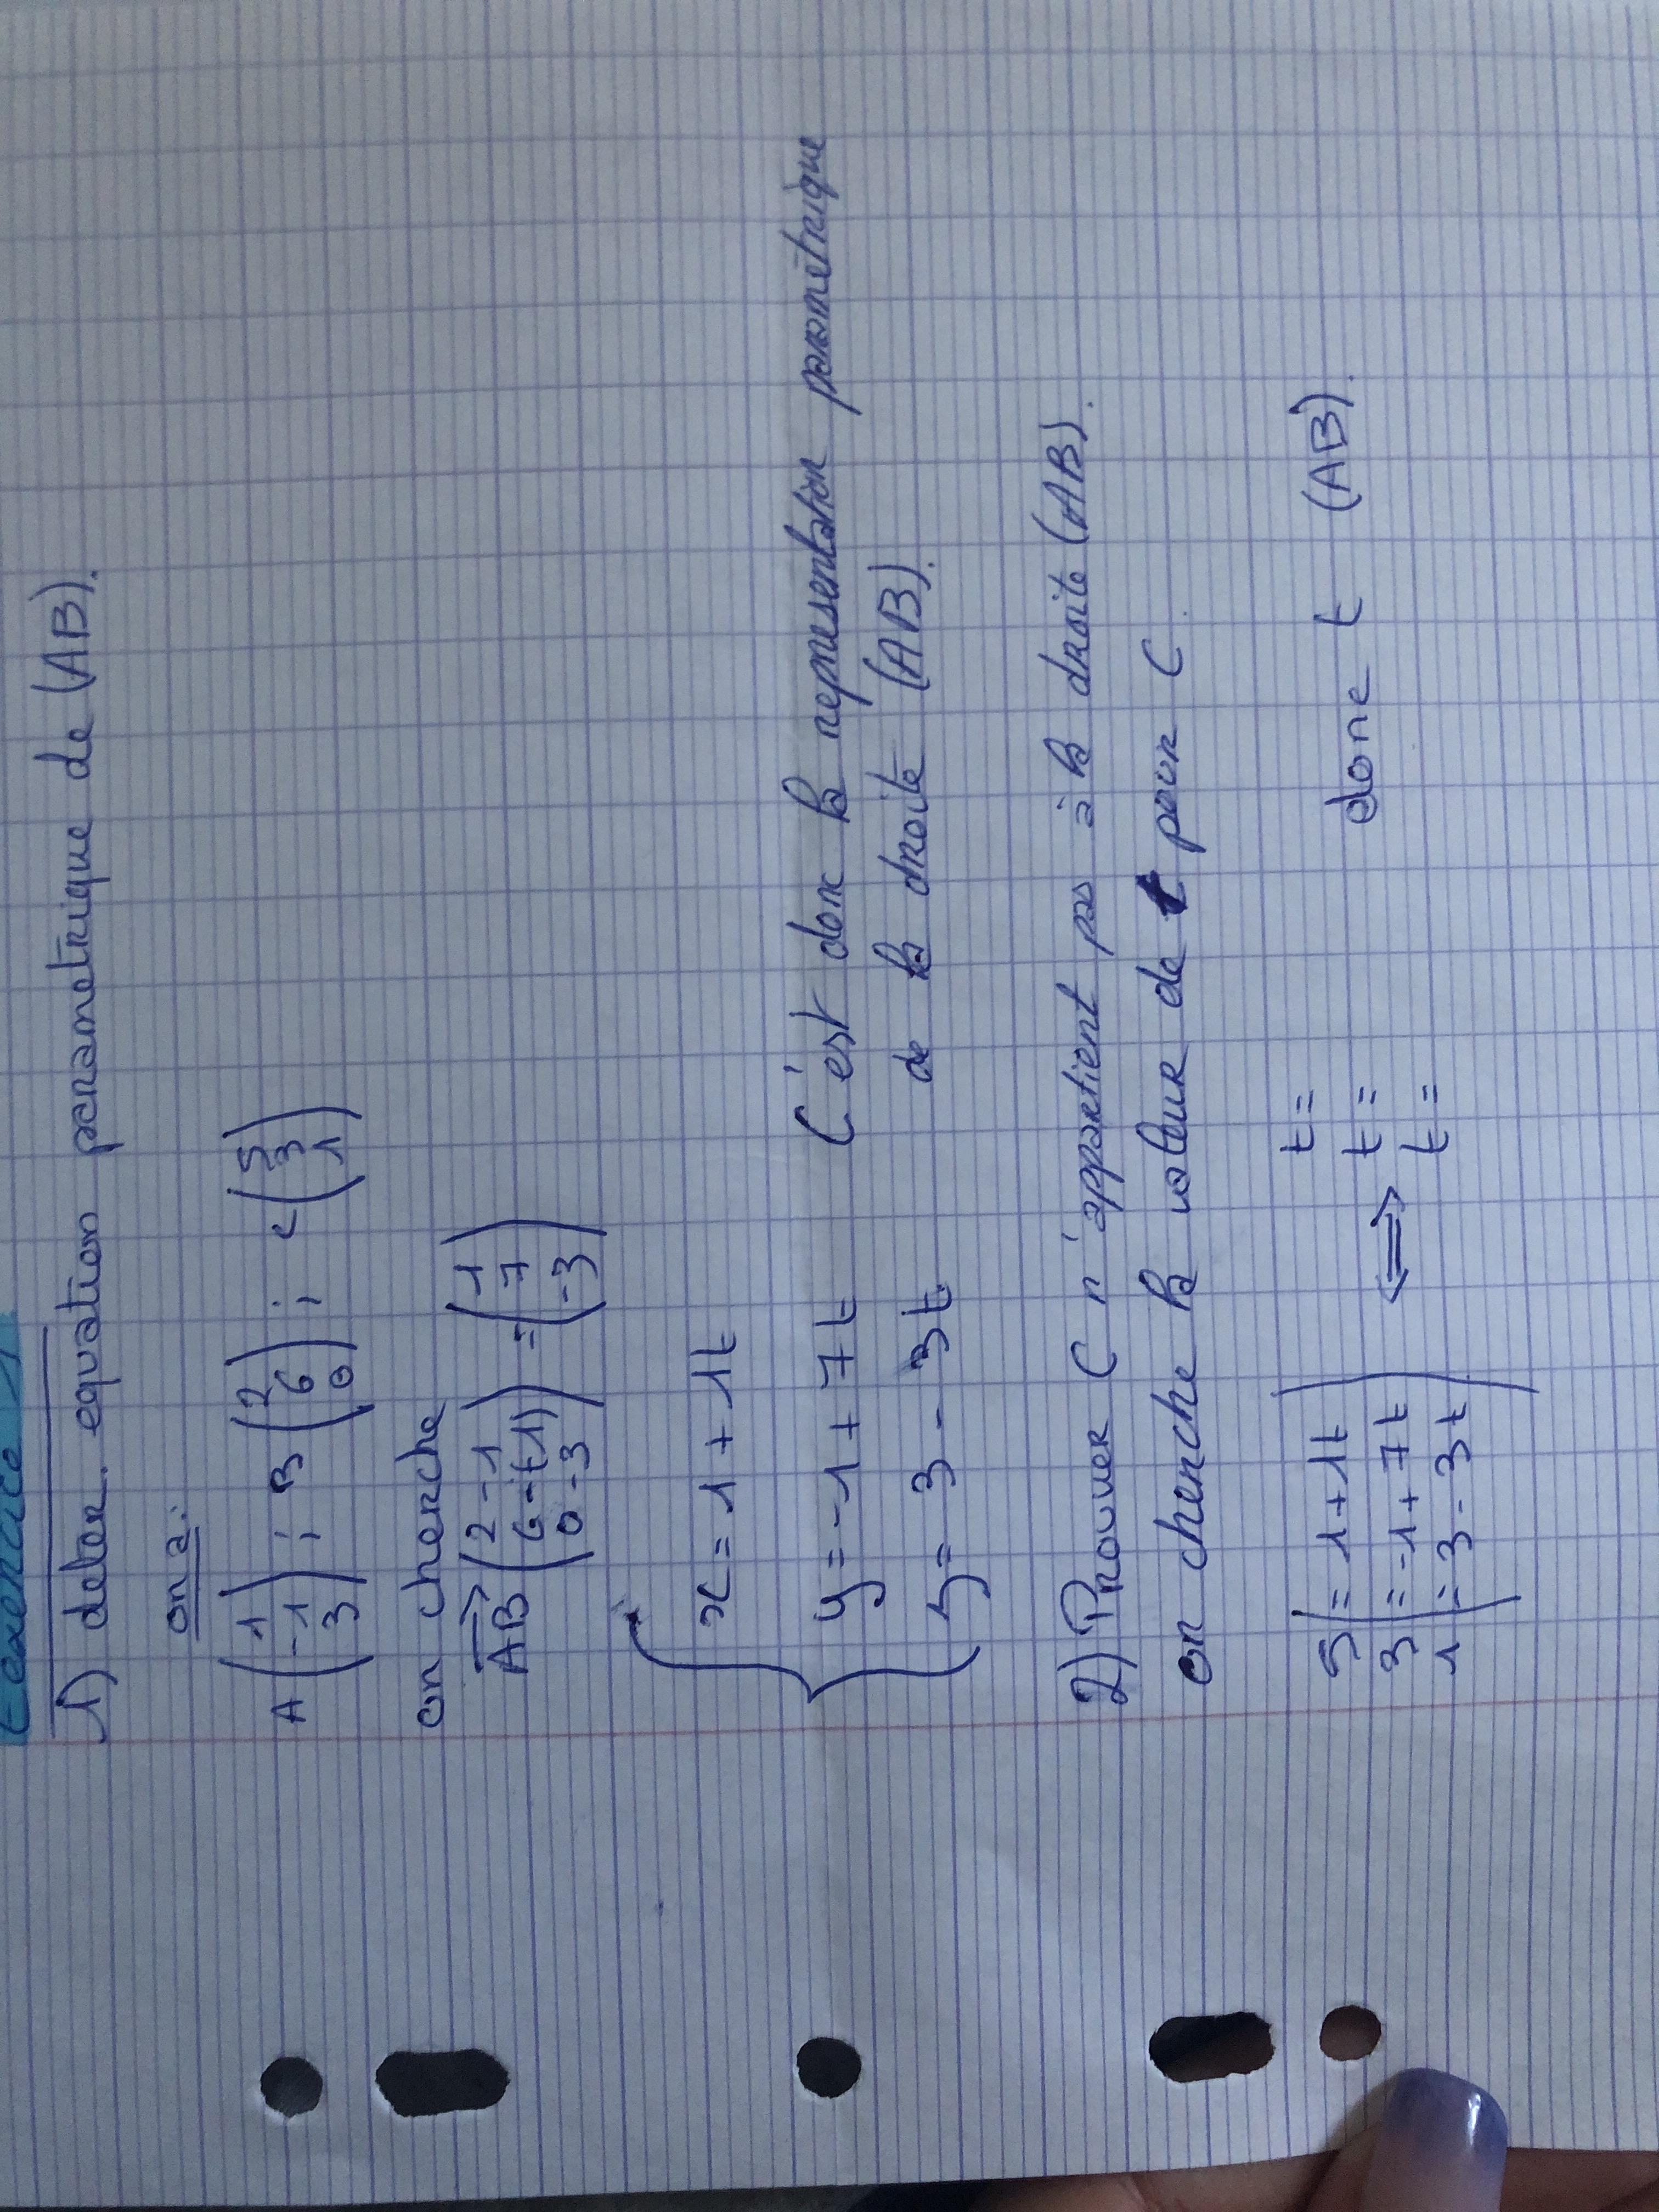 Exercice 1
1) deter. equation parametrique de (AB).
on a:
A (1 -1 3) ; B (2 6 0) ; C (5 3 1)
on cherche
AB (2-1 6-(-1) 0-3) = (1 7 -3)
x = 1 + 1t
y = -1 + 7t C'est donc la representation paramétrique
z = 3 - 3t de la droite (AB).
2) Prouver C n'appartient pas à la droite (AB).
on cherche la valeur de t pour C.
5 = 1+1t t =
3 = -1+7t <=> t = donc t (AB).
1 = 3-3t t =